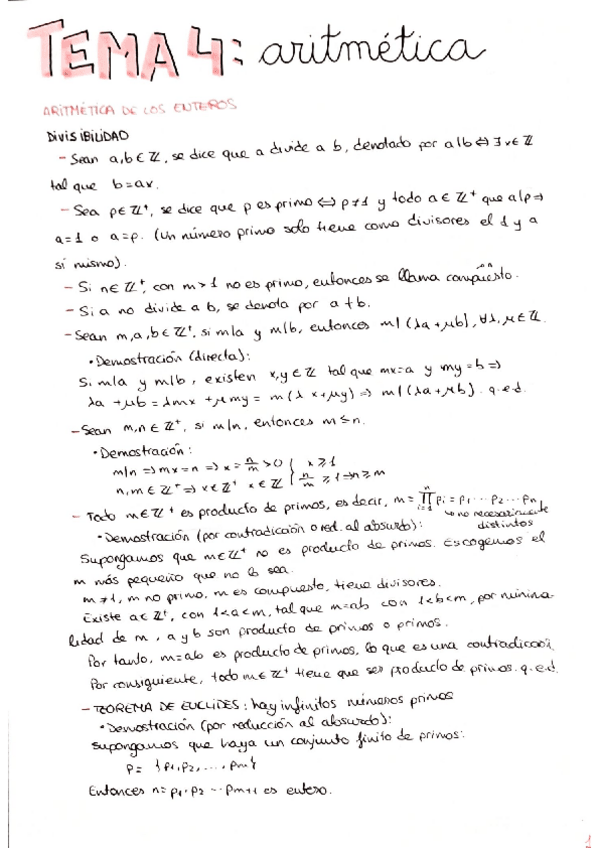 TEMA 4: aritmética
ARITMÉTICA DE LOS ENTEROS
DIVISIBILIDAD
- Sean a,b ∈ ℤ, se dice que a divide a b, denotado por a|b ⇔ ∃ x ∈ ℤ
tal que b=ax.
- Sea p∈ℤ⁺, se dice que p es primo ⇔ p≠1 y todo a∈ℤ⁺ que a|p ⇒
a=1 o a=p. (Un número primo solo tiene como divisores el 1 y a
sí mismo).
- Si n∈ ℤ⁺, con m>1 no es primo, entonces se llama compuesto.
- Si a no divide a b, se denota por a∤b.
- Sean m,a,b∈ℤ⁺, si m|a y m|b, entonces m|(λa+μb), ∀λ,μ∈ℤ.
• Demostración (directa):
Si m|a y m|b, existen x,y∈ℤ tal que mx=a y my=b ⇒
λa+μb = λmx+μmy = m(λx+μy) ⇒ m|(λa+μb). q.e.d.
- Sean m,n∈ℤ⁺, si m|n, entonces m≤n.
• Demostración:
m|n ⇒ mx=n ⇒ x=n/m >0 { x≥1
n,m∈ℤ⁺ ⇒ x∈ℤ⁺ x∈ℤ { n/m ≥1 ⇒ n≥m
- Todo m∈ℤ⁺ es producto de primos, es decir, m= ∏ᵢ₌₁ⁿ pᵢ = p₁ · p₂ ... pₙ
↳ no necesariamente
distintos
• Demostración (por contradicción o red. al absurdo):
Supongamos que m∈ℤ⁺ no es producto de primos. Escogemos el
m más pequeño que no lo sea.
m≠1, m no primo, m es compuesto, tiene divisores.
Existe a∈ℤ⁺, con 1<a<m, tal que m=ab con 1<b<m, por minima-
lidad de m, a y b son producto de primos o primos.
Por tanto, m=ab es producto de primos, lo que es una contradicción.
Por consiguiente, todo m∈ℤ⁺ tiene que ser producto de primos. q.e.d.
- TEOREMA DE EUCLIDES: hay infinitos números primos
• Demostración (por reducción al absurdo):
Supongamos que haya un conjunto finito de primos:
P= {p₁,p₂,...,pm}
Entonces n=p₁·p₂ ... pm+1 es entero.
1